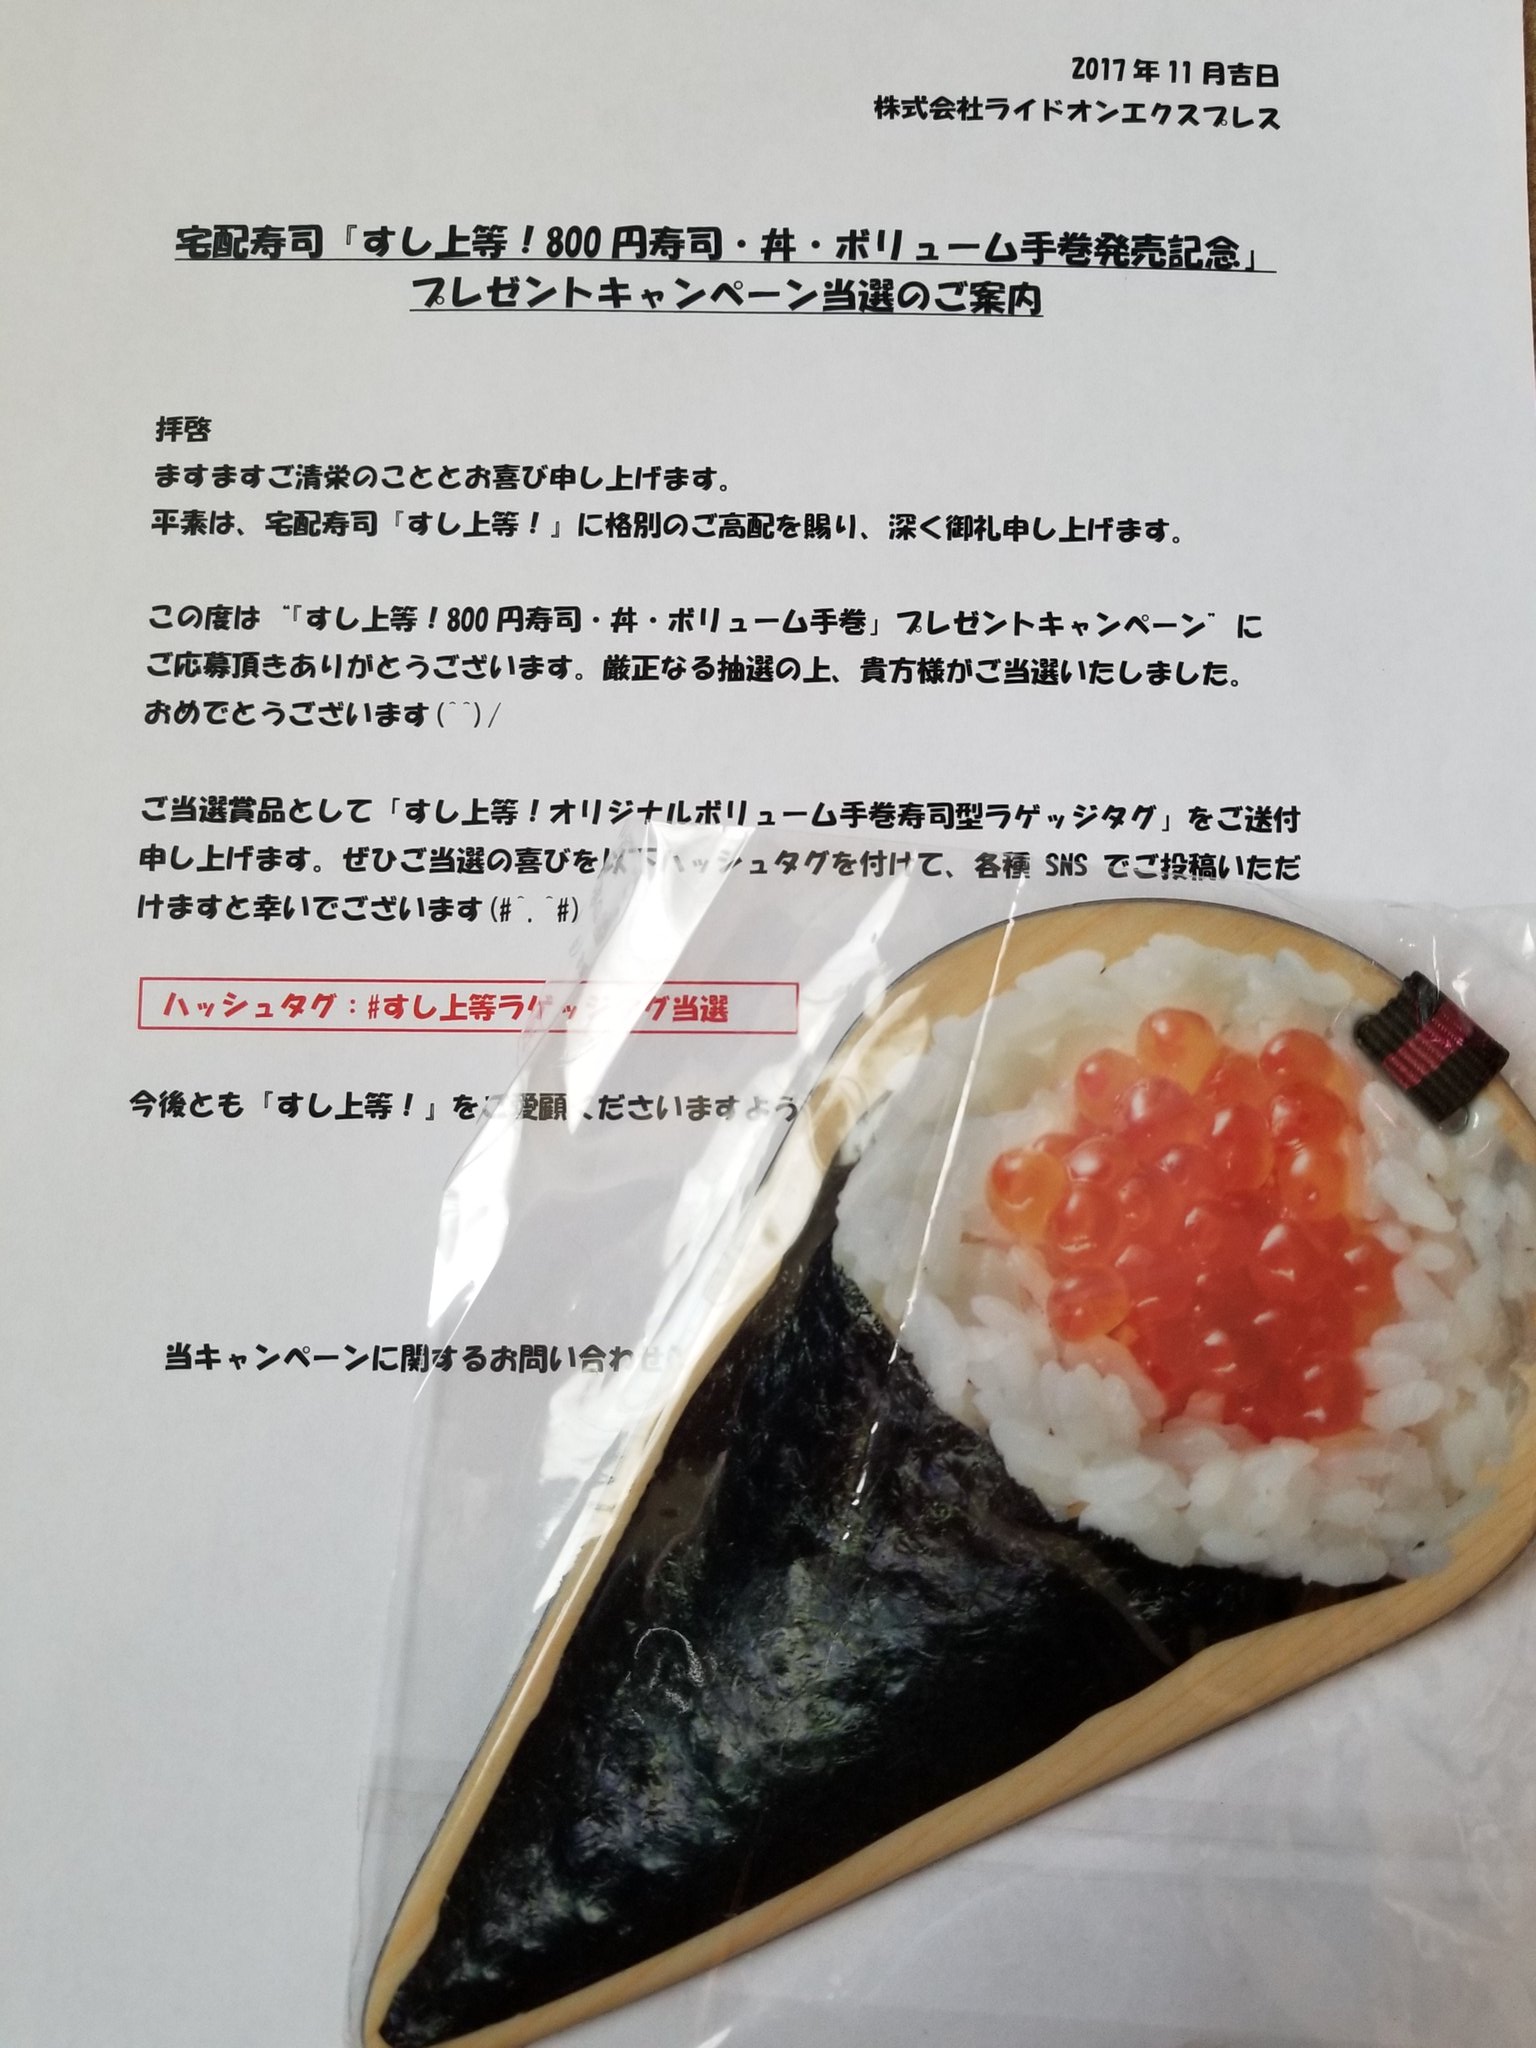 2017年11月吉日
株式会社ライドオンエクスプレス
宅配寿司『すし上等！800円寿司・丼・ボリューム手巻発売記念」
プレゼントキャンペーン当選のご案内
拝啓
ますますご清栄のこととお喜び申し上げます。
平素は、宅配寿司『すし上等！』に格別のご高配を賜り、深く御礼申し上げます。
この度は“『すし上等！800円寿司・丼・ボリューム手巻」プレゼントキャンペーン”に
ご応募頂きありがとうございます。厳正なる抽選の上、貴方様がご当選いたしました。
おめでとうございます(^^)/
ご当選賞品として「すし上等！オリジナルボリューム手巻寿司型ラゲッジタグ」をご送付
申し上げます。ぜひご当選の喜びを以下ハッシュタグを付けて、各種 SNS でご投稿いただ
けますと幸いでございます(#^.^#)
ハッシュタグ：#すし上等ラゲッジタグ当選
今後とも「すし上等！」をご愛顧くださいますよう
当キャンペーンに関するお問い合わせ